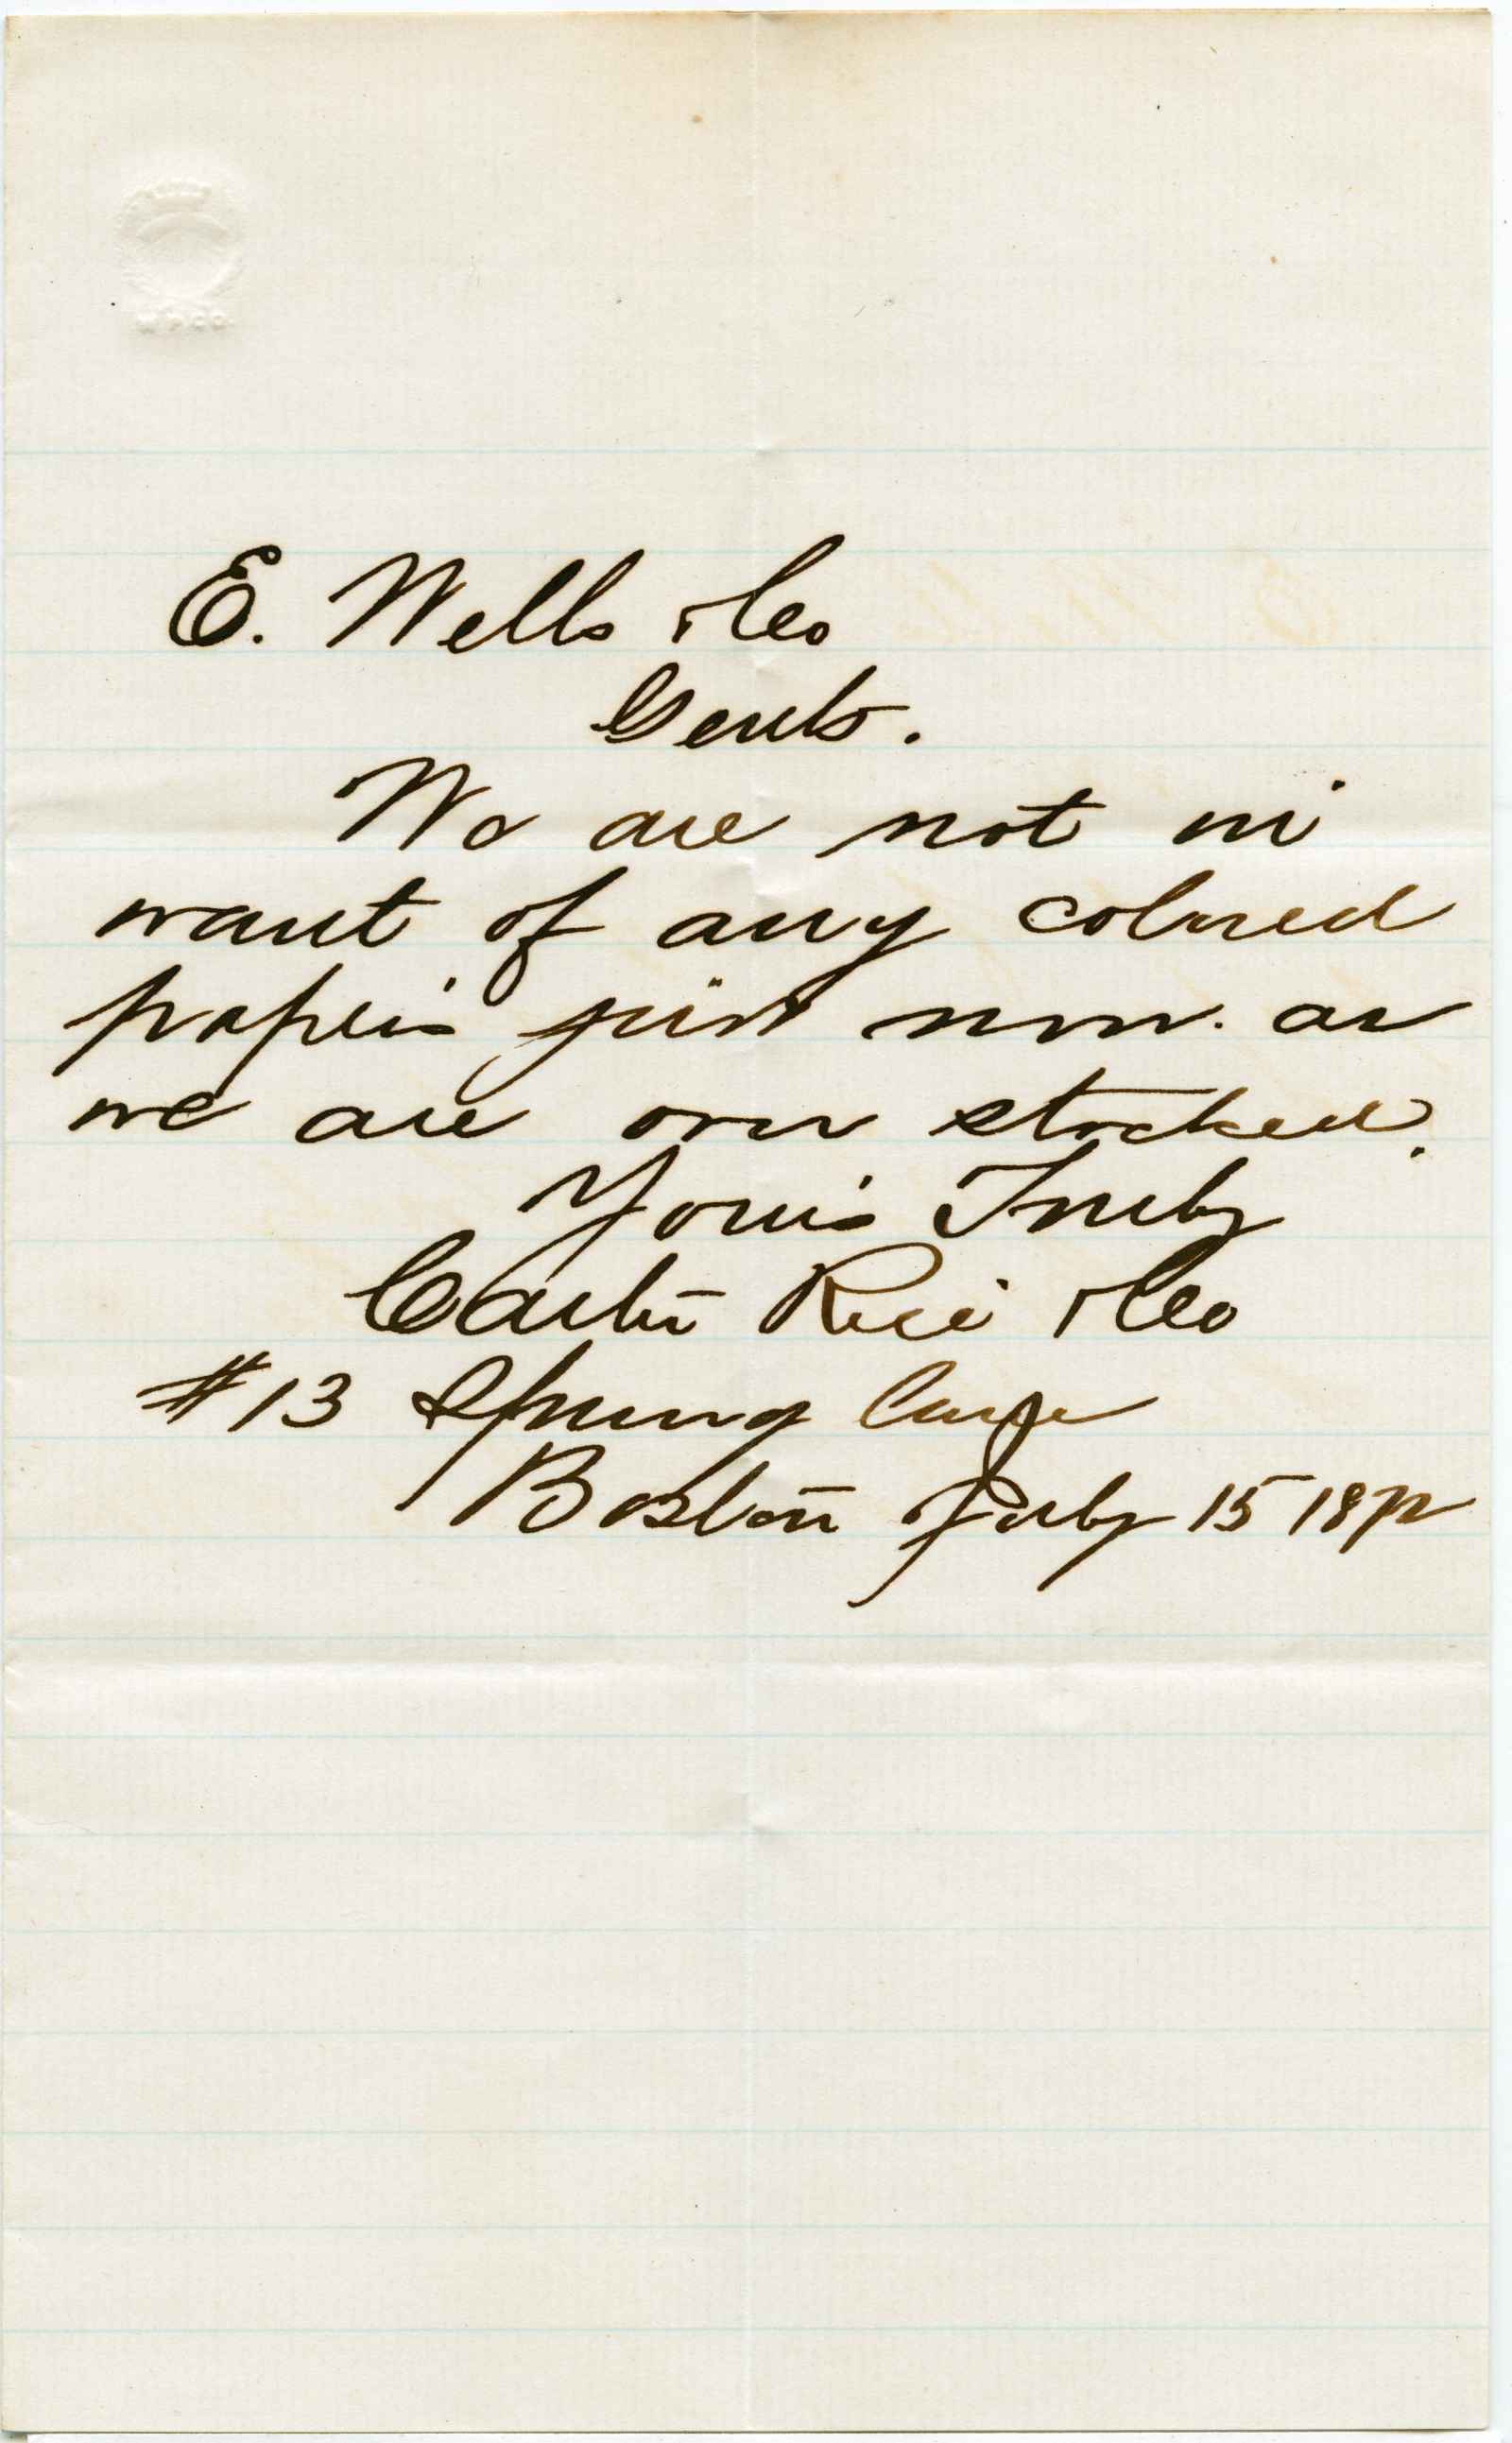 E. Wells & Co
Gents.
We are not in
want of any colored
papers just now. as
we are over stocked.
Yours Truly
Carter Rice & Co
#13 Spring Lane
Boston July 15 1872